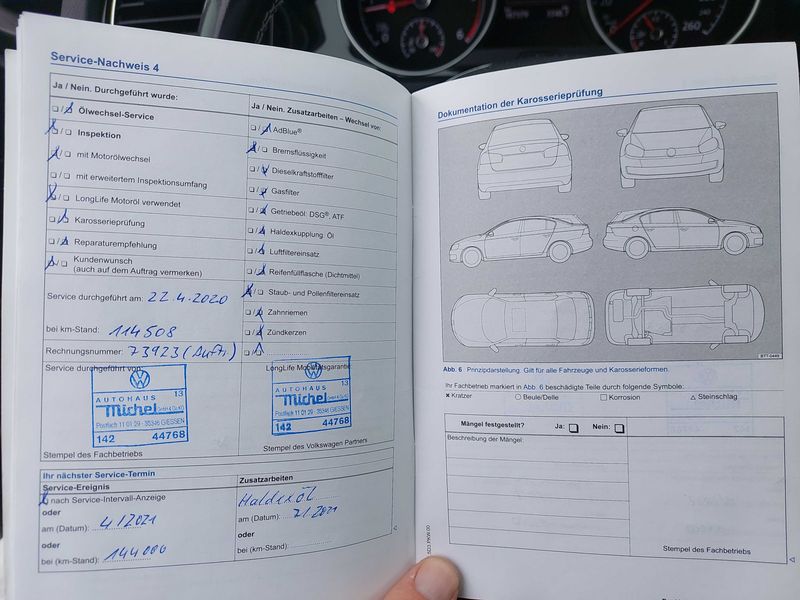 Service-Nachweis 4
Ja / Nein. Durchgeführt wurde:
Ölwechsel-Service
Inspektion
mit Motorölwechsel
mit erweitertem Inspektionsumfang
LongLife Motoröl verwendet
Karosserieprüfung
Reparaturempfehlung
Kundenwunsch
(auch auf dem Auftrag vermerken)
Service durchgeführt am: 22.4.2020
bei km-Stand: 114508
Rechnungsnummer: 73923 (Auftr.)
Service durchgeführt von:
AUTOHAUS 13
Michel GmbH & Co KG
Postfach 11 01 29 - 35346 GIESSEN
142 44768
Stempel des Fachbetriebs
Ja / Nein. Zusatzarbeiten – Wechsel von:
AdBlue®
Bremsflüssigkeit
Dieselkraftstofffilter
Gasfilter
Getriebeöl: DSG®, ATF
Haldexkupplung: Öl
Luftfiltereinsatz
Reifenfüllflasche (Dichtmittel)
Staub- und Pollenfiltereinsatz
Zahnriemen
Zündkerzen
LongLife Mobilitätsgarantie
AUTOHAUS 13
Michel GmbH & Co KG
Postfach 11 01 29 - 35346 GIESSEN
142 44768
Stempel des Volkswagen Partners
Ihr nächster Service-Termin
Service-Ereignis
nach Service-Intervall-Anzeige
oder
am (Datum): 4/2021
oder
bei (km-Stand): 144000
Zusatzarbeiten
Haldexöl
am (Datum): 7/2021
oder
bei (km-Stand):
Dokumentation der Karosserieprüfung
B7T-0449
Abb. 6 Prinzipdarstellung. Gilt für alle Fahrzeuge und Karosserieformen.
Ihr Fachbetrieb markiert in Abb. 6 beschädigte Teile durch folgende Symbole:
× Kratzer ○ Beule/Delle □ Korrosion △ Steinschlag
Mängel festgestellt? Ja: Nein:
Beschreibung der Mängel:
Stempel des Fachbetriebs
6
260